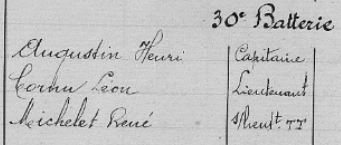 30e Batterie
Augustin Henri Capitaine
Cornu Léon Lieutenant
Michelet René s/lieut. TT